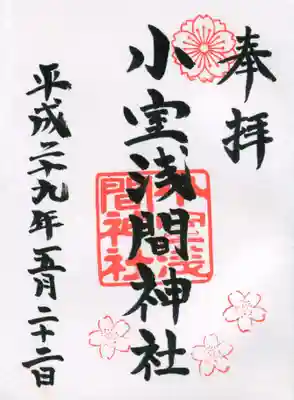 奉拝
小室浅間神社
平成二十九年五月二十二日
小室浅間神社